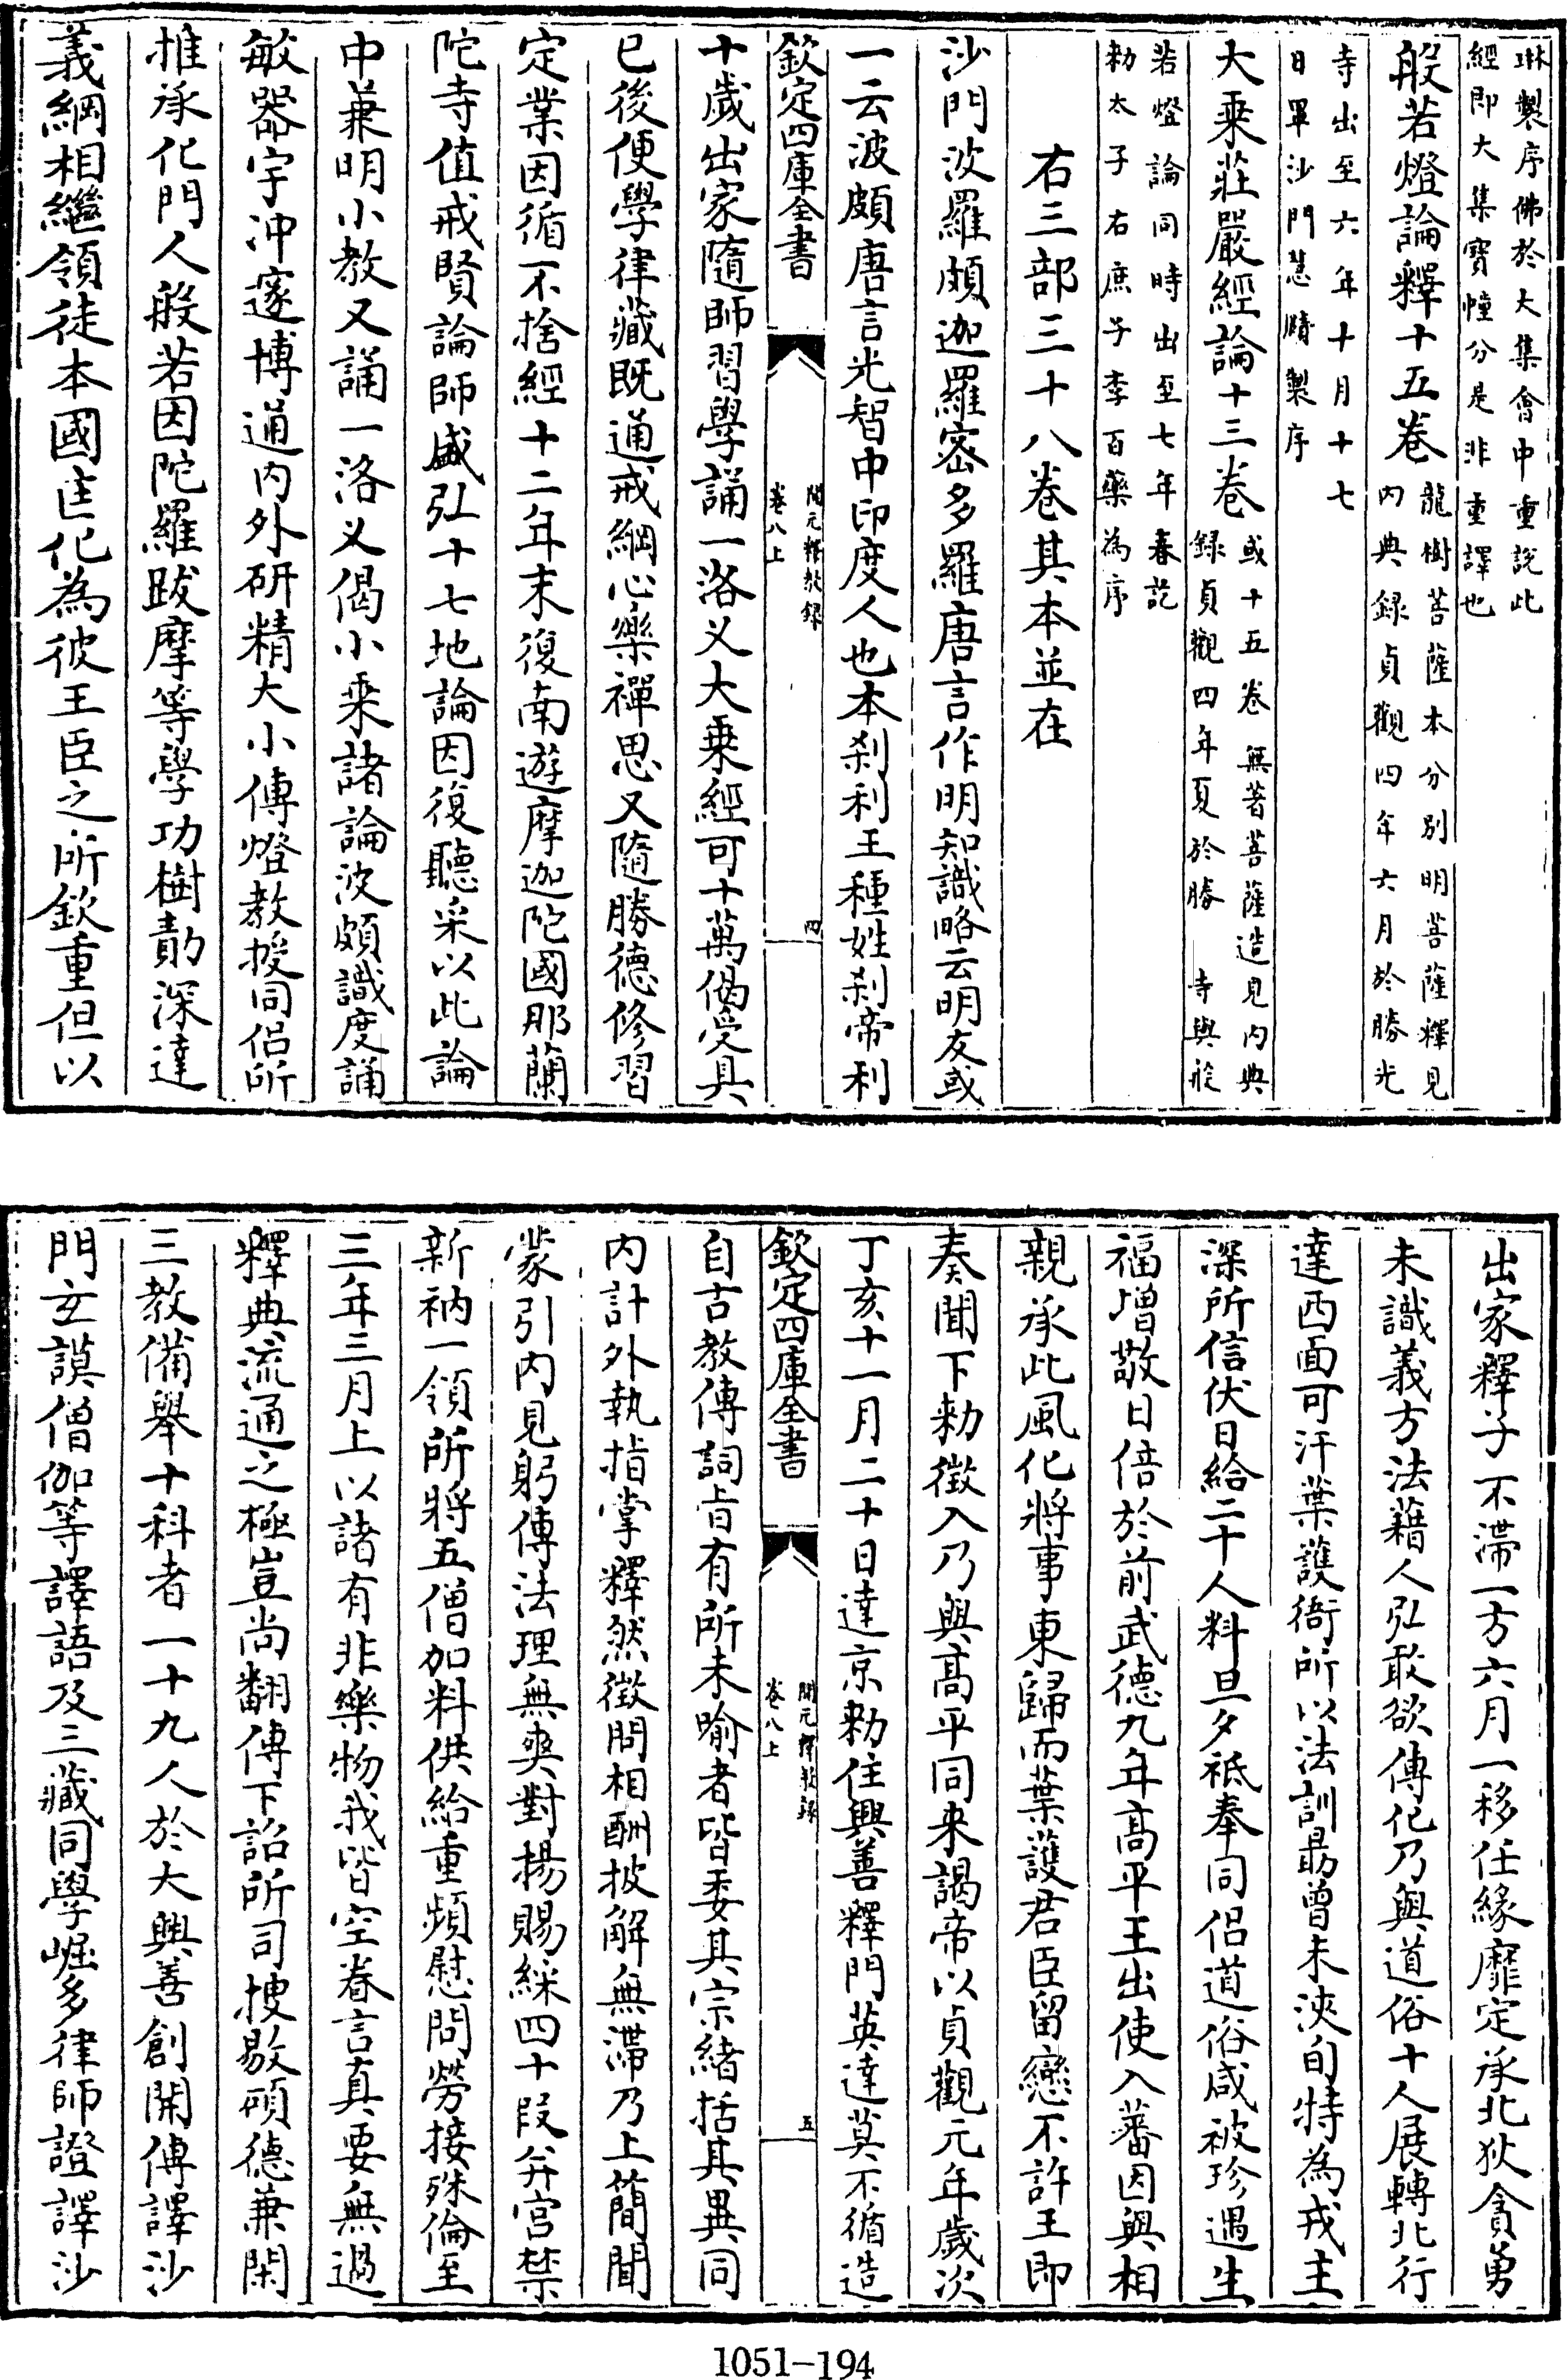 琳製序佛於大集會中重説此
經即大集寳幢分是非重譯也
般若燈論釋十五卷
龍樹菩薩本分別明菩薩釋見
内典録貞觀四年六月於勝光
寺出至六年十月十七
日畢沙門慧賾製序
大乗莊嚴經論十三卷
或十五卷 無著菩薩造見内典
録貞觀四年夏於勝 寺與般
若燈論同時出至七年春訖
勅太子右庶子李百藥為序
右三部三十八卷其本並在
沙門波羅頗迦羅密多羅唐言作明知識略云明友或
一云波頗唐言光智中印度人也本刹利王種姓刹帝利
欽定四庫全書
開元釋教録
卷八上
四
十歳出家隨師習學誦一洛乂大乗經可十萬偈受具
已後便學律藏既通戒綱心樂禪思又隨勝德修習
定業因循不捨經十二年末復南遊摩迦陀國那蘭
陀寺值戒賢論師盛弘十七地論因復聽采以此論
中兼明小教又誦一洛乂偈小乗諸論波頗識度誦
敏器宇冲邃博通内外研精大小傳燈教授同侣所
推承化門人般若因陀羅跋摩等學功樹勣深達
義綱相繼領徒本國匡化為彼王臣之所欽重但以
出家釋子不滯一方六月一移任緣靡定承北狄貪勇
未識義方法藉人弘敢欲傳化乃與道俗十人展轉北行
達西面可汗葉護衙所以法訓勗曾未浹旬特為戎主
深所信伏日給二十人料旦夕祗奉同侣道俗咸被珍遇生
福增敬日倍於前武德九年高平王出使入蕃因與相
親承此風化將事東歸而葉護君臣留戀不許王即
奏聞下勅徴入乃與高平同來謁帝以貞觀元年歳次
丁亥十一月二十日達京勅住興善釋門英達莫不循造
欽定四庫全書
開元釋教録
卷八上
五
自古教傳詞旨有所未喻者皆委其宗緒括其異同
内計外執指掌釋然徴問相酬披解無滯乃上簡聞
蒙引内見躬傳法理無爽對揚賜綵四十段并宫禁
新衲一領所將五僧加料供給重頻慰問勞接殊倫至
三年三月上以諸有非樂物我皆空眷言真要無過
釋典流通之極豈尚翻傳下詔所司搜敭碩德兼閑
三教備舉十科者一十九人於大興善創開傳譯沙
門玄謨僧伽等譯語及三藏同學崛多律師證譯沙
1051-194